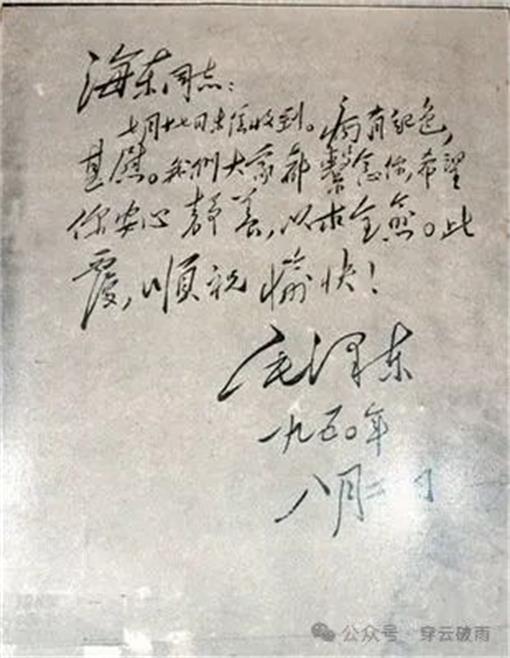 海东同志：
七月十七日来信收到。病有起色，
甚慰。我們大家都繫念你，希望
你安心静养，以求全愈。此
覆，順祝愉快！
毛泽东
一九五〇年
八月二日
公众号·穿云破雨